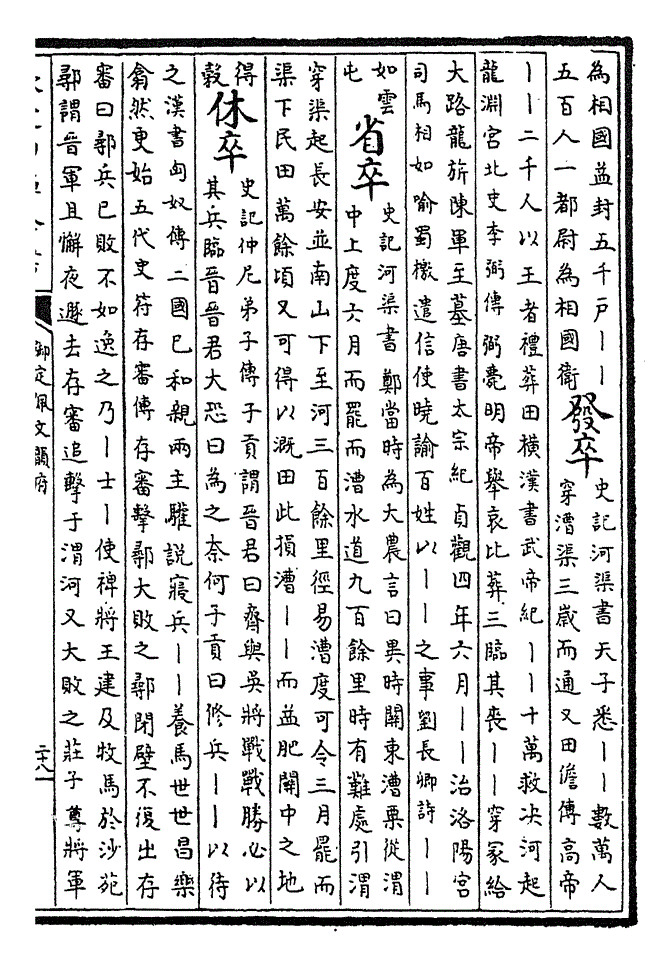 為相國益封五千戸――
五百人一都尉為相國衛
發卒
史記河渠書天子悉――數萬人
穿漕渠三嵗而通又田儋傳高帝
――二千人以王者禮葬田横漢書武帝紀――十萬救决河起
龍淵宮北史李弼傳弼薨明帝舉哀比葬三臨其喪――穿冢給
大路龍旂陳軍至墓唐書太宗紀貞觀四年六月――治洛陽宮
司馬相如喻蜀檄遣信使曉諭百姓以――之事劉長卿詩――
如雲
屯
省卒
史記河渠書鄭當時為大農言曰異時關東漕粟從渭
中上度六月而罷而漕水道九百餘里時有難處引渭
穿渠起長安並南山下至河三百餘里徑易漕度可令三月罷而
渠下民田萬餘頃又可得以溉田此損漕――而益肥關中之地
得
穀
休卒
史記仲尼弟子傳子貢謂晉君曰齊與吳將戰戰勝必以
其兵臨晉晉君大恐曰為之奈何子貢曰修兵――以待
之漢書匈奴傳二國已和親兩主驩說寢兵――養馬世世昌樂
翕然更始五代史符存審傳存審擊鄩大敗之鄩閉壁不復出存
審曰鄩兵已敗不如逸之乃―士―使裨將王建及牧馬於沙苑
鄩謂晉軍且懈夜遯去存審追擊于渭河又大敗之莊子尊將軍
御定佩文韻府